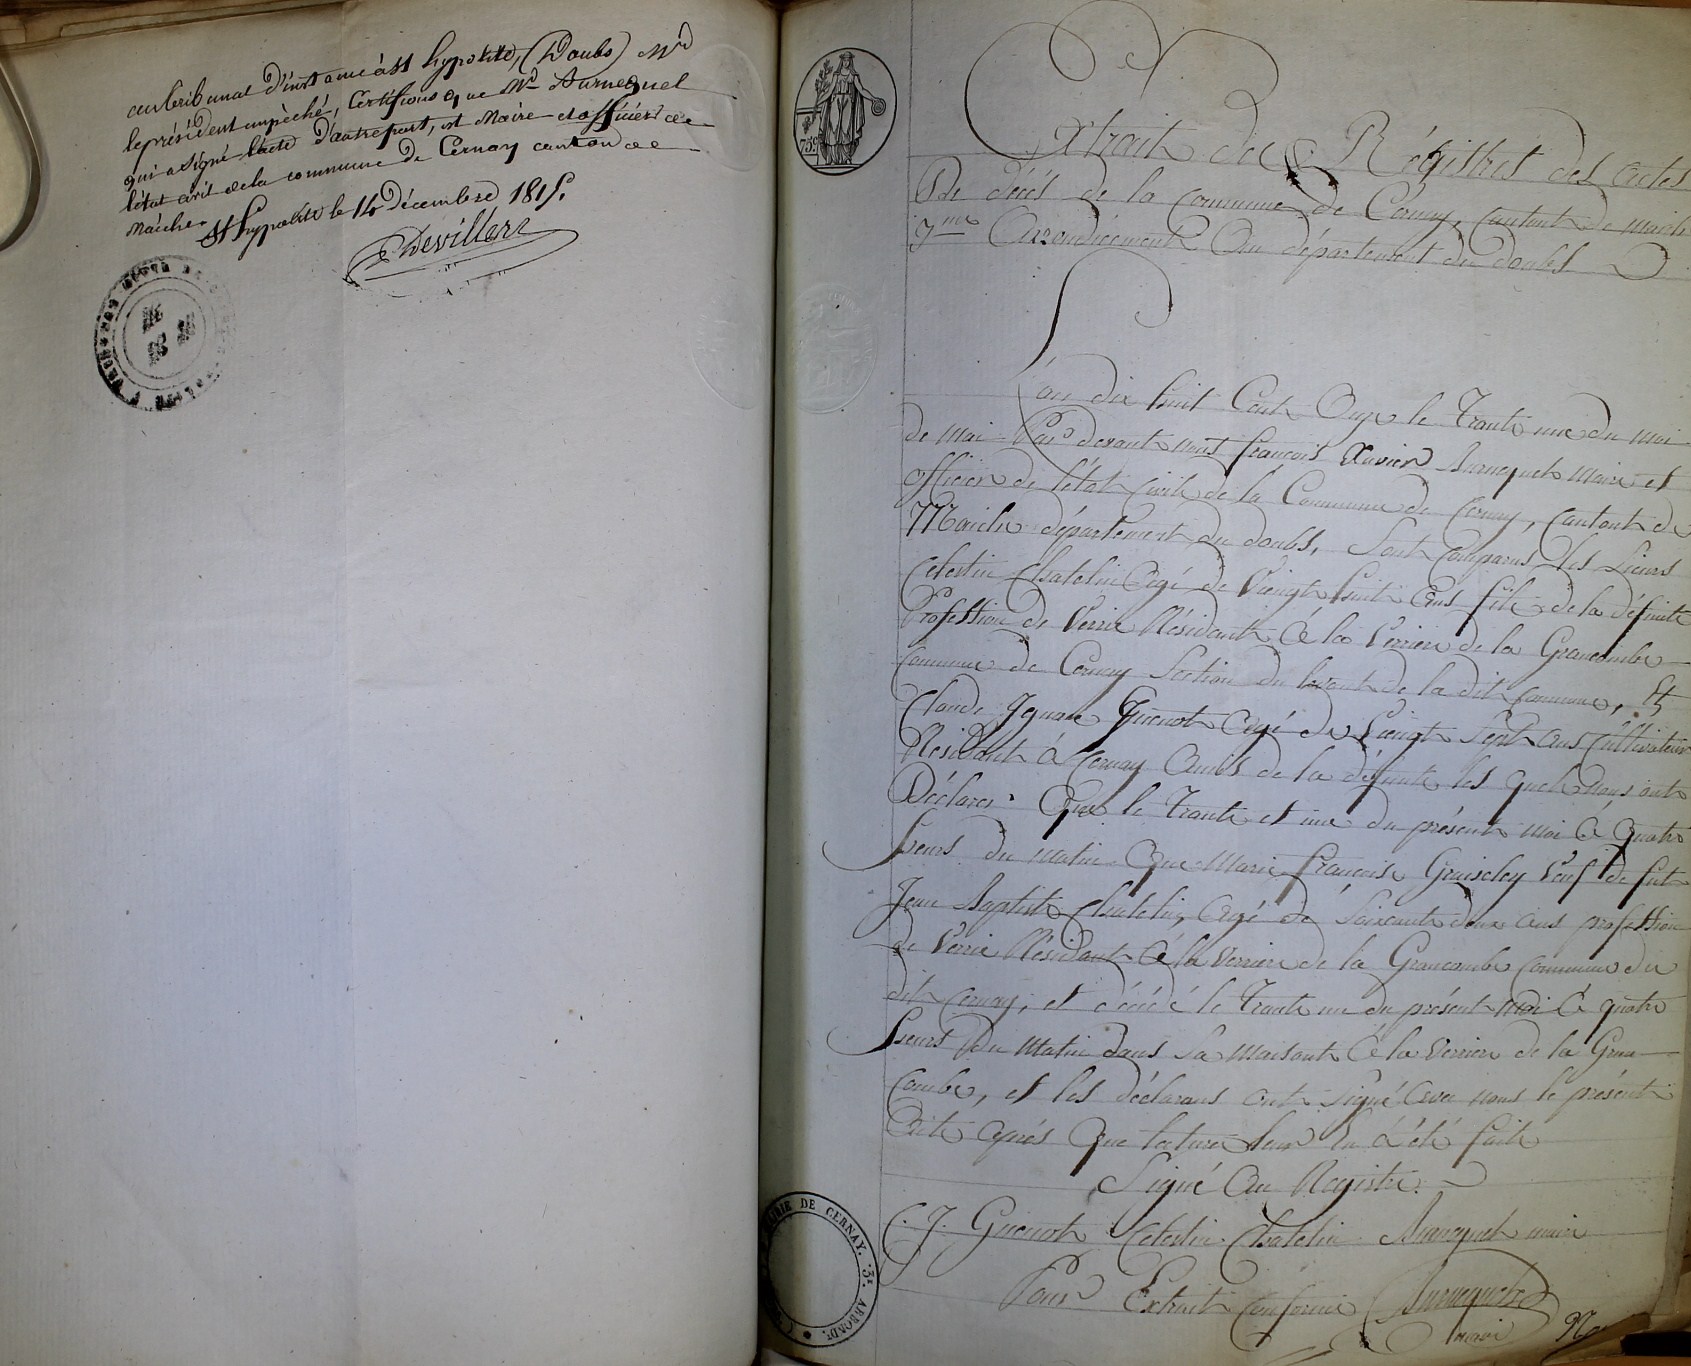 au tribunal d'instance à St hypolite, (Doubs) Mr
le président empêché, Certifions que Mr Burnequel
qui a signé l'acte d'autrepart, est Maire et officier de
l'état civil de la commune de Cernay canton de
Maiche. St hypolite le 14 Décembre 1815.
Devillers
75c
Extrait des Régistres des actes
De décés de la Commune de Cernay, Cantont de Maiche
3me Arrondicement Du département du doubs
L'an dix huit Cent Onze le Trante une du moi
de Mai Par devant nous françois Xavier Burnequel Maire et
officier de l'état Civile de la Commune de Cernay, Cantont de
Maiche département du doubs, Sont Comparus les Sieurs
Celestin Chatelin Agé de Viengt huit Ans fils de la défunte
Profession de Verrie Résidant A la Verriere de la Grancombe
Commune de Cernay Section du levant de la dit Commune, Et
Claude Ignace Guenot Agé de Viengt Sept Ans Cultivateur
Résidant à Cernay Amis de la défunte les quels nous ont
Déclarer Que le Trante et une du présent moi A quatre
heurs du matin Que Marie françoise Graiseley Veuf de fut
Jean Baptiste Chatelin, Agé de Soixante deux ans profession
de Verrie Résidant A la Verriere de la Grancombe Commune du
dit Cernay, et décédé le Trante une du présent Moi A quatre
heurs Du Matin dans Sa Maisont A la Verriere de la Gran
Combe, et les déclarans ont Signé Avec nous le présent
Acte après Que lecture leur En A été fait
Signé Au Registre.
C. J. Guenot Celestin Chatelin Burnequel maire
Pour Extrait Conforme Burnequel
maire
MAIRIE DE CERNAY. 3E. ARRONDT.